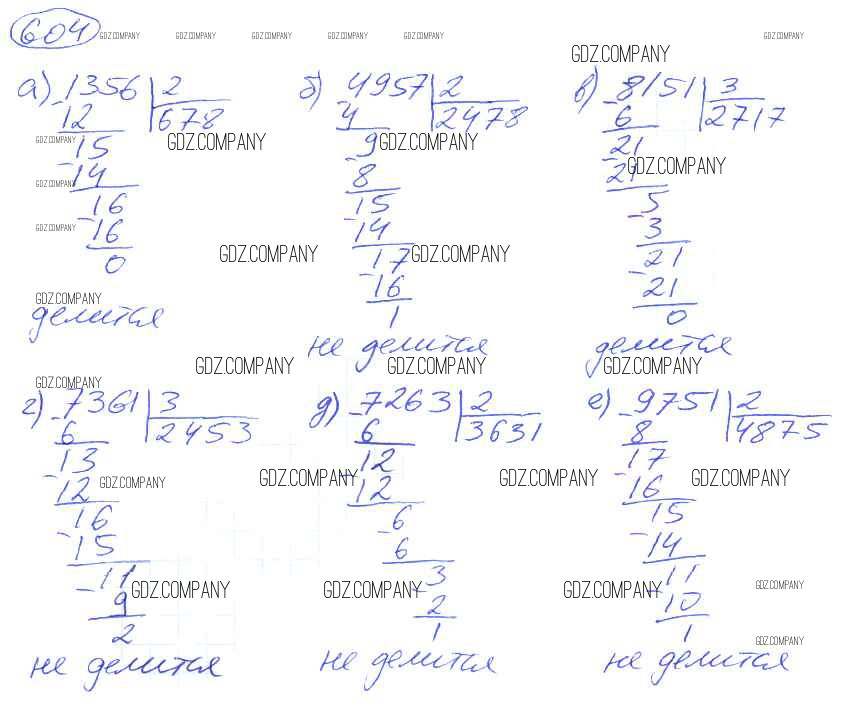 604 GDZ.COMPANY GDZ.COMPANY GDZ.COMPANY GDZ.COMPANY GDZ.COMPANY GDZ.COMPANY
GDZ.COMPANY
а) 1356 | 2
- 12 678
15
- 14
16
- 16
0
делится
б) 4957 | 2
- 4 2478
9
- 8
15
- 14
17
- 16
1
не делится
в) 8151 | 3
- 6 2717
21
- 21
5
- 3
21
- 21
0
делится
GDZ.COMPANY GDZ.COMPANY
GDZ.COMPANY GDZ.COMPANY
GDZ.COMPANY
GDZ.COMPANY GDZ.COMPANY GDZ.COMPANY
GDZ.COMPANY
GDZ.COMPANY GDZ.COMPANY GDZ.COMPANY
GDZ.COMPANY
г) 7361 | 3
- 6 2453
13
- 12
16
- 15
11
- 9
2
не делится
д) 7263 | 2
- 6 3631
12
- 12
6
- 6
3
- 2
1
не делится
е) 9751 | 2
- 8 4875
17
- 16
15
- 14
11
- 10
1
не делится
GDZ.COMPANY GDZ.COMPANY GDZ.COMPANY GDZ.COMPANY
GDZ.COMPANY GDZ.COMPANY GDZ.COMPANY GDZ.COMPANY
GDZ.COMPANY